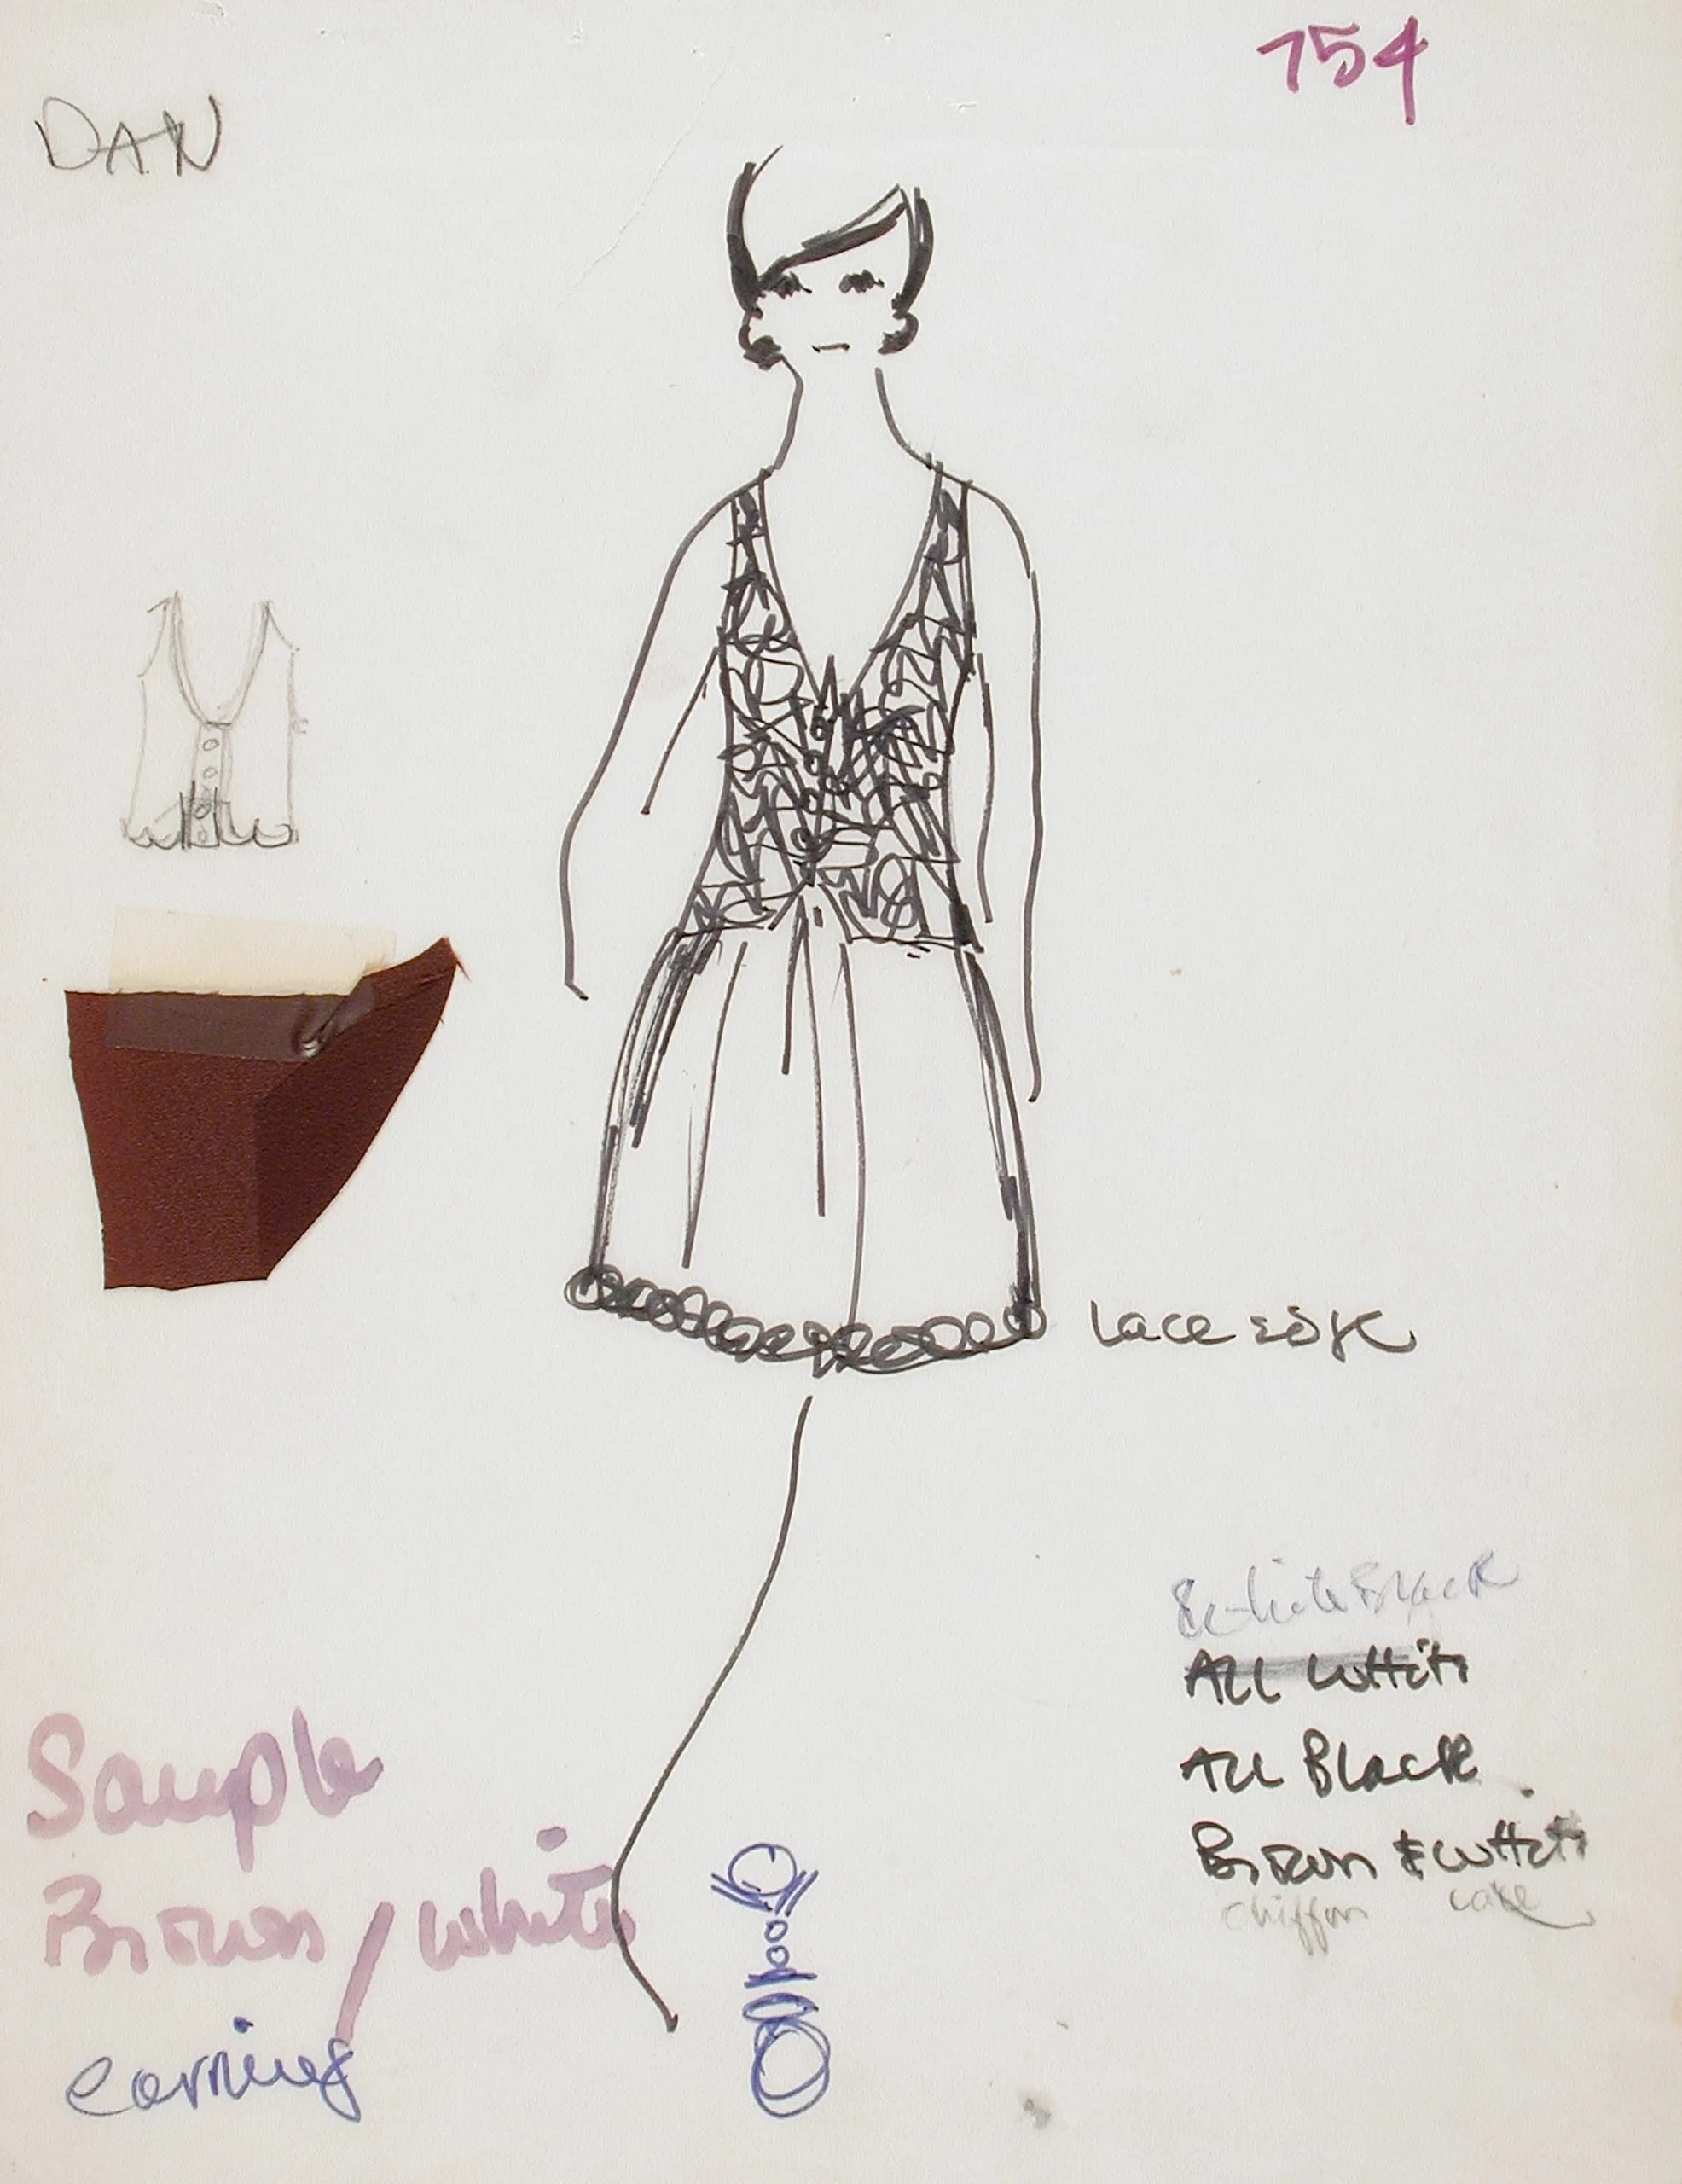 754
DAN
Lace EDGE
White Black
ALL WHite
ALL BLACK
Brown & WHite
chiffon Lace
Sample
Brown / white
earring